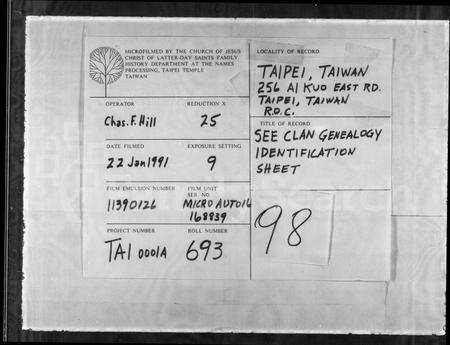 MICROFILMED BY THE CHURCH OF JESUS
CHRIST OF LATTER-DAY SAINTS FAMILY
HISTORY DEPARTMENT AT THE NAMES
PROCESSING, TAIPEI TEMPLE
TAIWAN
OPERATOR
REDUCTION X
Chas. F. Hill
25
DATE FILMED
EXPOSURE SETTING
22 Jan 1991
9
FILM EMULSION NUMBER
FILM UNIT
SER. NO.
11390126
MICRO AUTO 16
168839
PROJECT NUMBER
ROLL NUMBER
TAI 0001A
693
LOCALITY OF RECORD
TAIPEI, TAIWAN
256 AI KUO EAST RD.
TAIPEI, TAIWAN
R.O.C.
TITLE OF RECORD
SEE CLAN GENEALOGY
IDENTIFICATION
SHEET
98